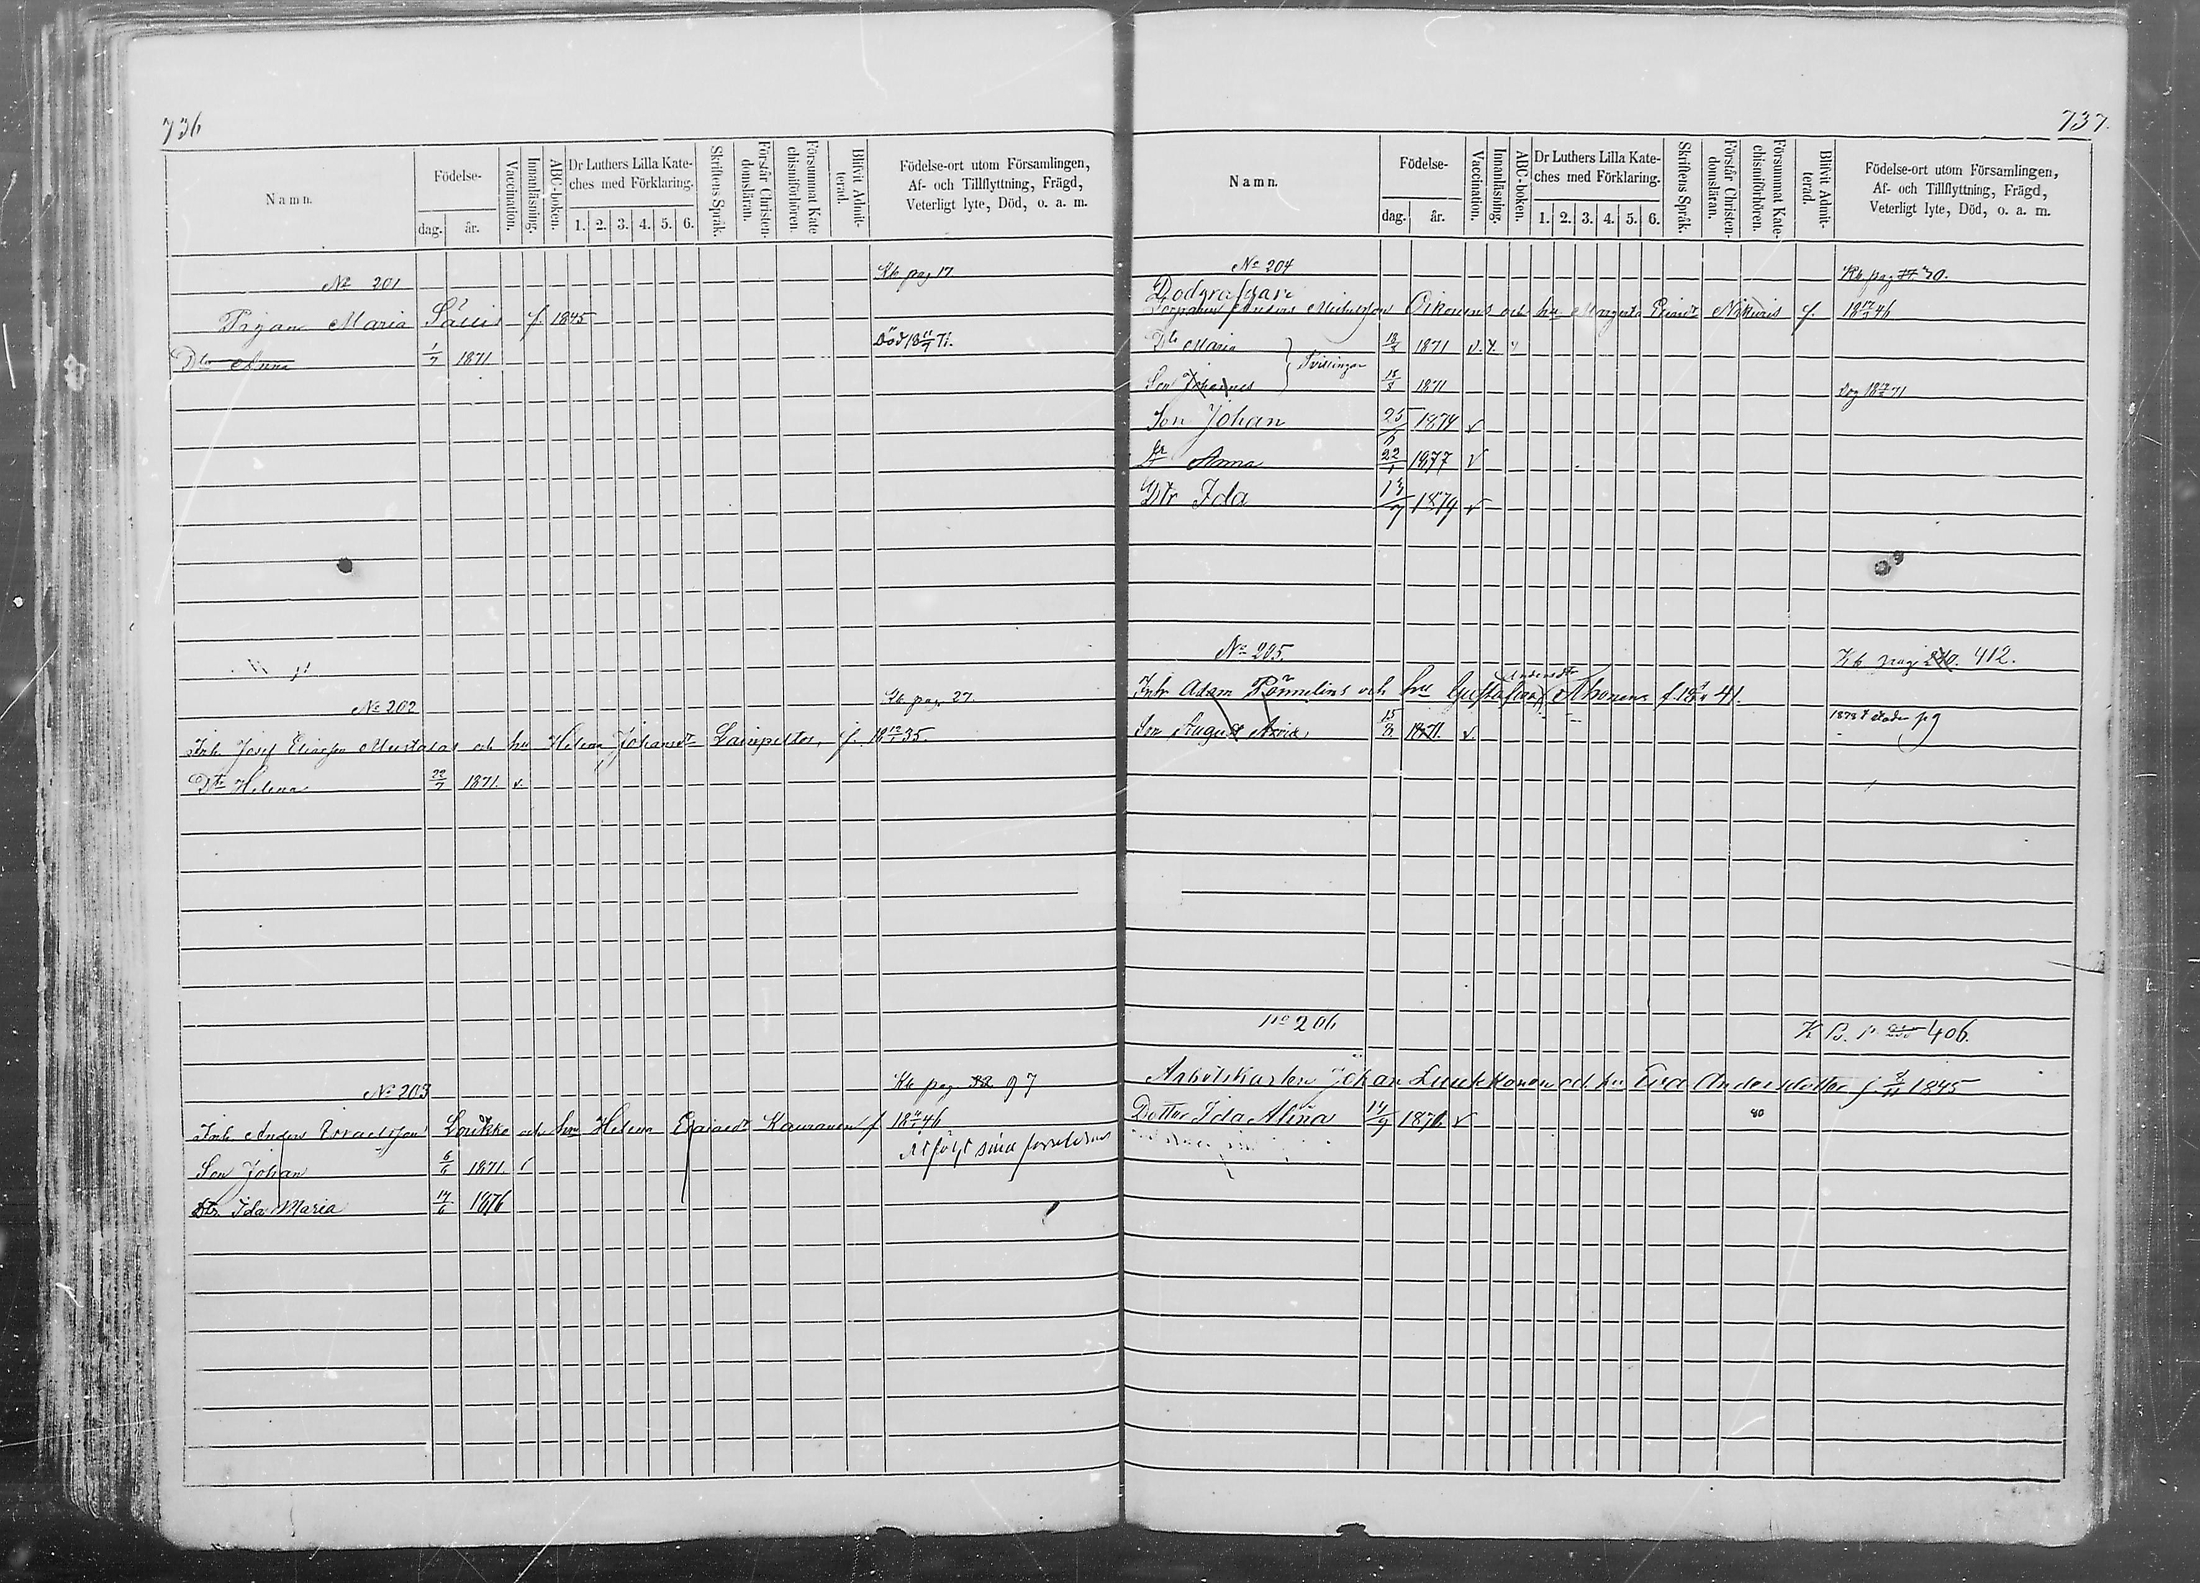 736
Namn.
Födelse-
dag. år.
Vaccination.
Innanläsning.
ABC-boken.
Dr Luthers Lilla Kate-
ches med Förklaring.
1. 2. 3. 4. 5. 6.
Skriftens Språk.
Förstår Christen-
domsläran.
Försummat Kate
chismiförhören.
Blifvit Admit-
terad.
Födelse-ort utom Församlingen,
Af- och Tillflyttning, Frägd,
Veterligt lyte, Död, o. a. m.
No 201 Kb. pag 17
Pigan Maria f. 1845
Dtr Anna 1/7 1871 Död 18 71.
No 202 Kb. pag. 27.
Inh. Josef Eliasson Mustalas och hu Helena Johansdr f. 18 12/1 35.
Dtr Helena 22/7 1871. v.
No 203 Kb pag 97
Inh Anders Israelsson Loukko och hu Helena Esaiasdr Kauranen f 18 46
Son Johan 6/6 1871
Dtr. Ida Maria 14/6 1876
Åtföljt sina föräldrar
737.
Namn.
Födelse-
dag. år.
Vaccination.
Innanläsning.
ABC-boken.
Dr Luthers Lilla Kate-
ches med Förklaring.
1. 2. 3. 4. 5. 6.
Skriftens Språk.
Förstår Christen-
domsläran.
Försummat Kate-
chismiförhören.
Blifvit Admit-
terad.
Födelse-ort utom Församlingen,
Af- och Tillflyttning, Frägd,
Veterligt lyte, Död, o. a. m.
No 204 Kb. pag 30.
Dödgräfvare
Anders Michelsson Oikonens och hu Margreta f. 18 46
Dtr Maria 18/8 1871 v.
Tvillingar
Son Johannes 18/8 1871 dog 18 71
Son Johan 25/6 1874 v
dr Anna 22/1 1877 v
Dtr Ida 13/7 1879 v
No 205. Kb pag 412.
Andersdtr
Inh Adam och hu Gustafva Ahonens f. 18 41.
Son August 15/8 1871. v.
No 206 K B. p. 406.
Arbetskarlen Johan Luukkonen och hu Eva Andersdotter f 1845
Dotter Ida Alina 14/9 1876 v 80